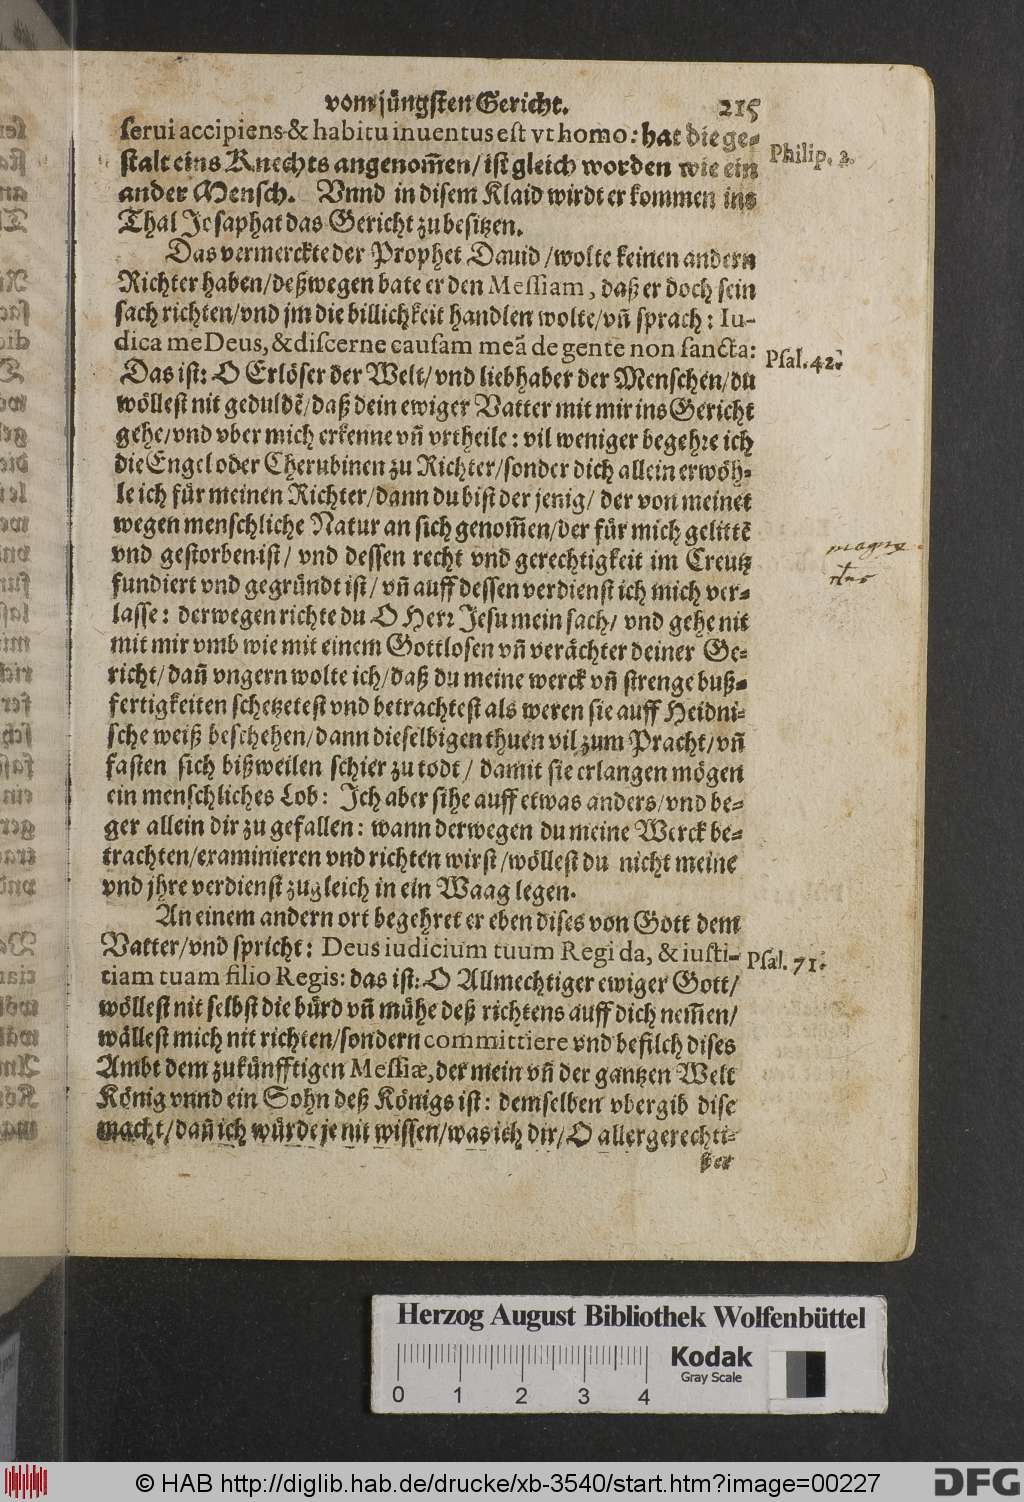 vom jüngsten Gericht. 215
serui accipiens & habitu inuentus est vt homo: hat die ge-
stalt eins Knechts angenom̃en/ ist gleich worden wie ein
Philip. 2.
ander Mensch. Vnnd in disem Klaid wirdt er kommen ins
Thal Josaphat das Gericht zu besitzen.
Das vermerckte der Prophet Dauid/ wolte keinen andern
Richter haben/ deßwegen bate er den Messiam, daß er doch sein
sach richten/ vnd jm die billichkeit handlen wolte/ vñ sprach: Iu-
dica me Deus, & discerne causam meã de gente non sancta:
Psal. 42.
Das ist: O Erlöser der Welt/ vnd liebhaber der Menschen/ du
wöllest nit geduldẽ/ daß dein ewiger Vatter mit mir ins Gericht
gehe/ vnd vber mich erkenne vñ vrtheile: vil weniger begehre ich
die Engel oder Cherubinen zu Richter/ sonder dich allein erwöh-
le ich für meinen Richter/ dann du bist der jenig/ der von meinet
wegen menschliche Natur an sich genom̃en/ der für mich gelittẽ
vnd gestorben ist/ vnd dessen recht vnd gerechtigkeit im Creutz
fundiert vnd gegründt ist/ vñ auff dessen verdienst ich mich ver-
lasse: derwegen richte du O Herr Jesu mein sach/ vnd gehe nit
mit mir vmb wie mit einem Gottlosen vñ verächter deiner Ge-
richt/ dañ vngern wolte ich/ daß du meine werck vñ strenge buß-
fertigkeiten schetzetest vnd betrachtest als weren sie auff Heidni-
sche weiß beschehen/ dann dieselbigen thuen vil zum Pracht/ vñ
fasten sich bißweilen schier zu todt/ damit sie erlangen mögen
ein menschliches Lob: Ich aber sihe auff etwas anders/ vnd be-
ger allein dir zu gefallen: wann derwegen du meine Werck be-
trachten/ examinieren vnd richten wirst/ wöllest du nicht meine
vnd jhre verdienst zugleich in ein Waag legen.
An einem andern ort begehret er eben dises von Gott dem
Vatter/ vnd spricht: Deus iudicium tuum Regi da, & iusti-
Psal. 71.
tiam tuam filio Regis: das ist: O Allmechtiger ewiger Gott/
wöllest nit selbst die bürd vñ mühe deß richtens auff dich nem̃en/
wällest mich nit richten/ sondern committiere vnd befilch dises
Ambt dem zukünfftigen Messiæ, der mein vñ der gantzen Welt
König vnnd ein Sohn deß Königs ist: demselben vbergib dise
macht/ dañ ich würde je nit wissen/ was ich dir/ O allergerechti-
ster
Herzog August Bibliothek Wolfenbüttel
Kodak
Gray Scale
0 1 2 3 4
© HAB http://diglib.hab.de/drucke/xb-3540/start.htm?image=00227
DFG